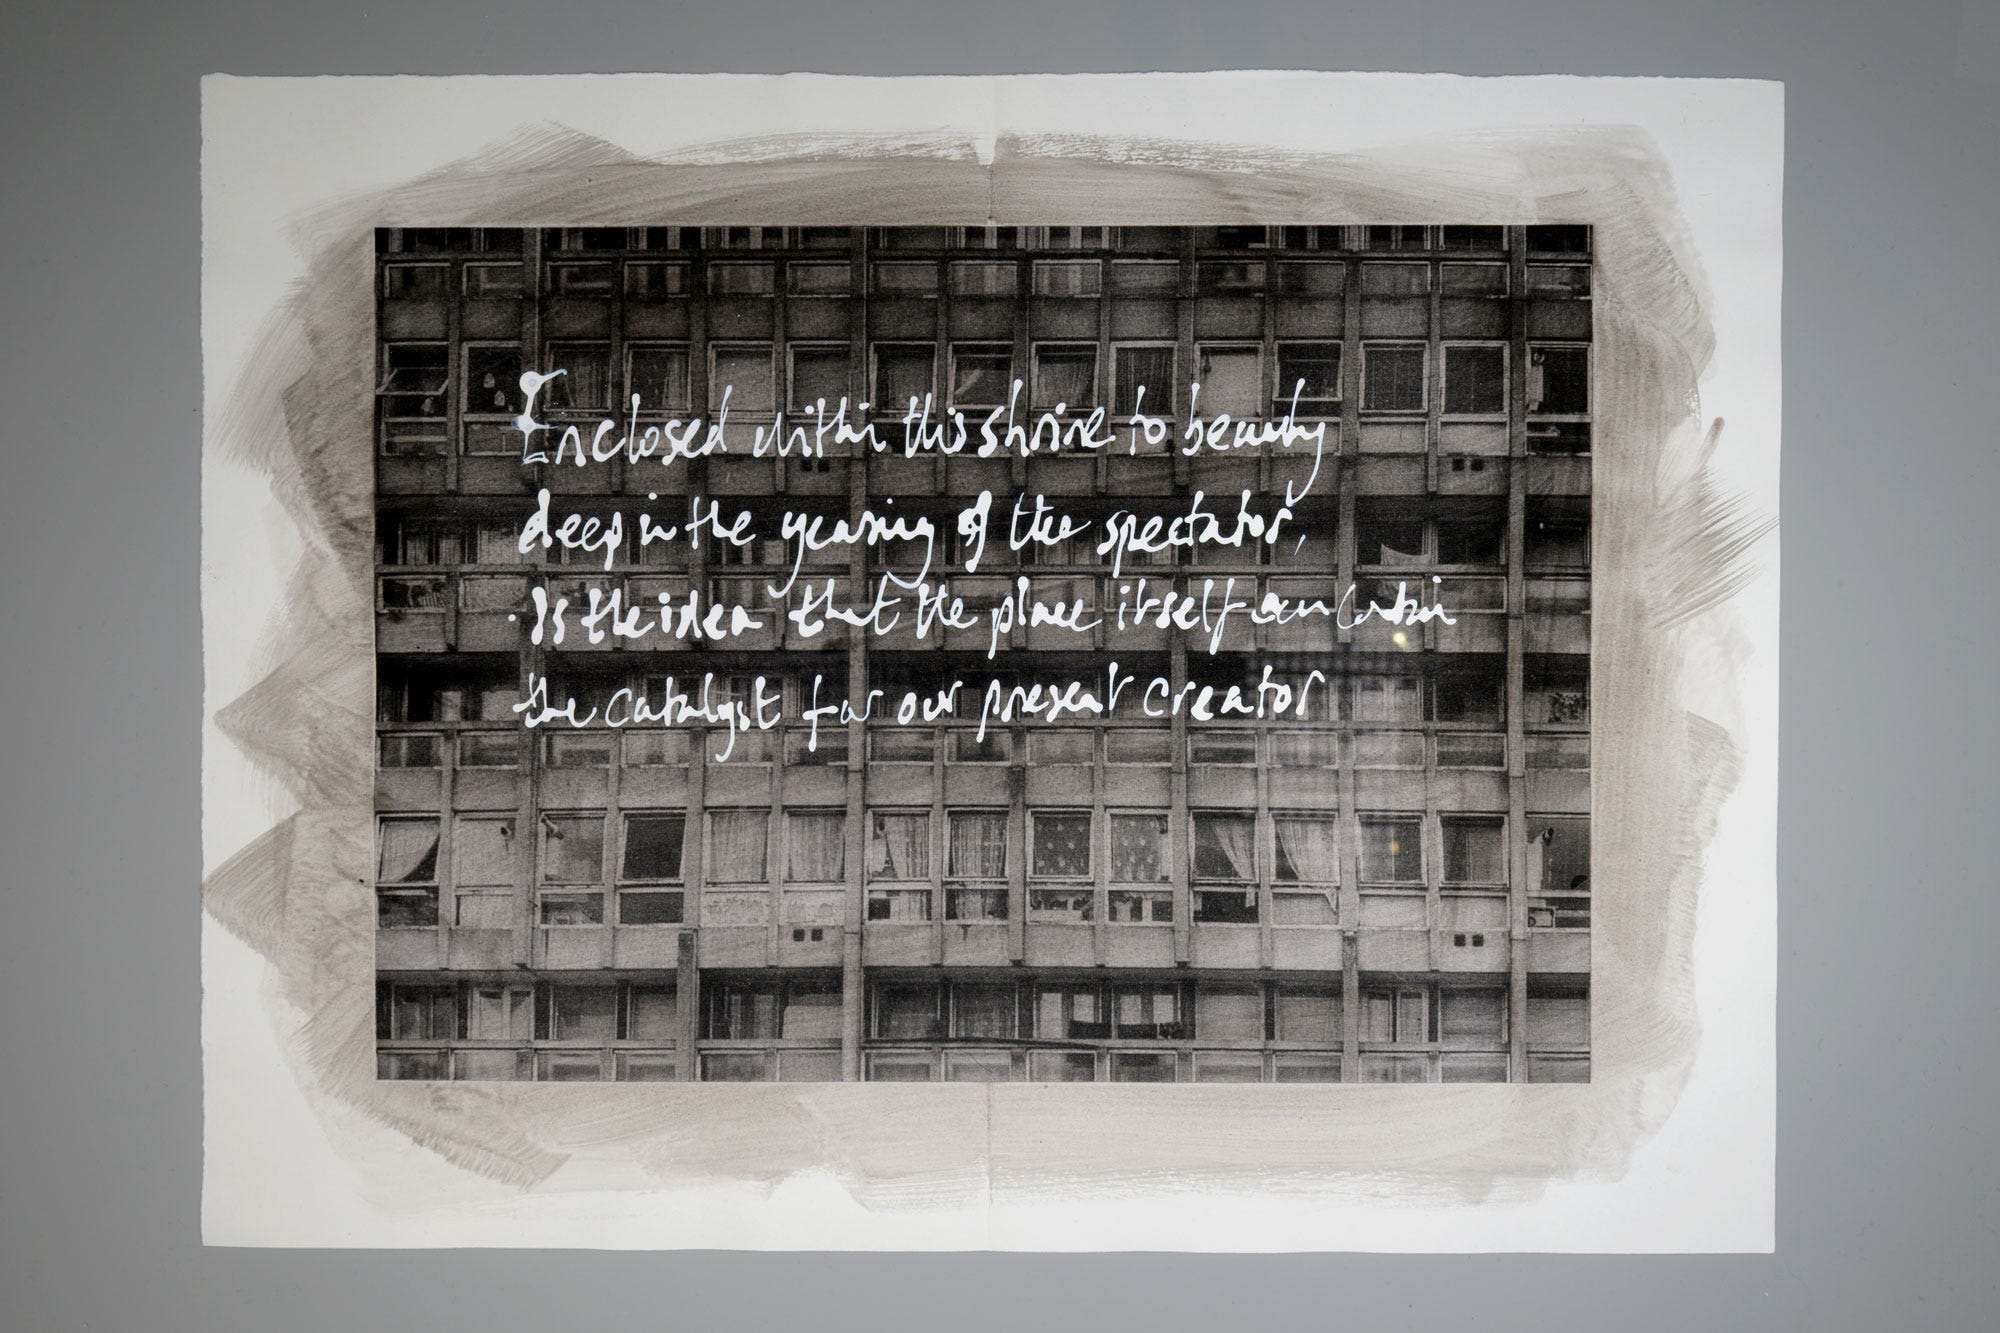 Enclosed within this shrine to beauty
deep in the yearing of the spectator,
Is the idea that the place itself can contain
the catalyst for our present creator